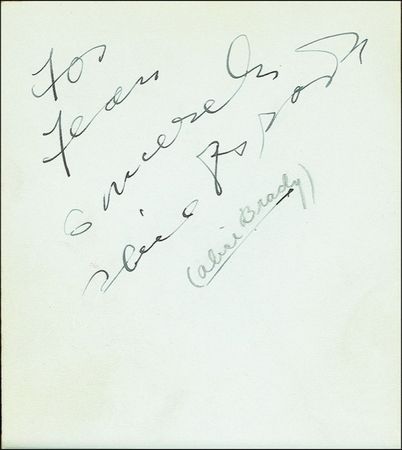 For
Jean
Sincerely
Alice Brady
(Alice Brady)